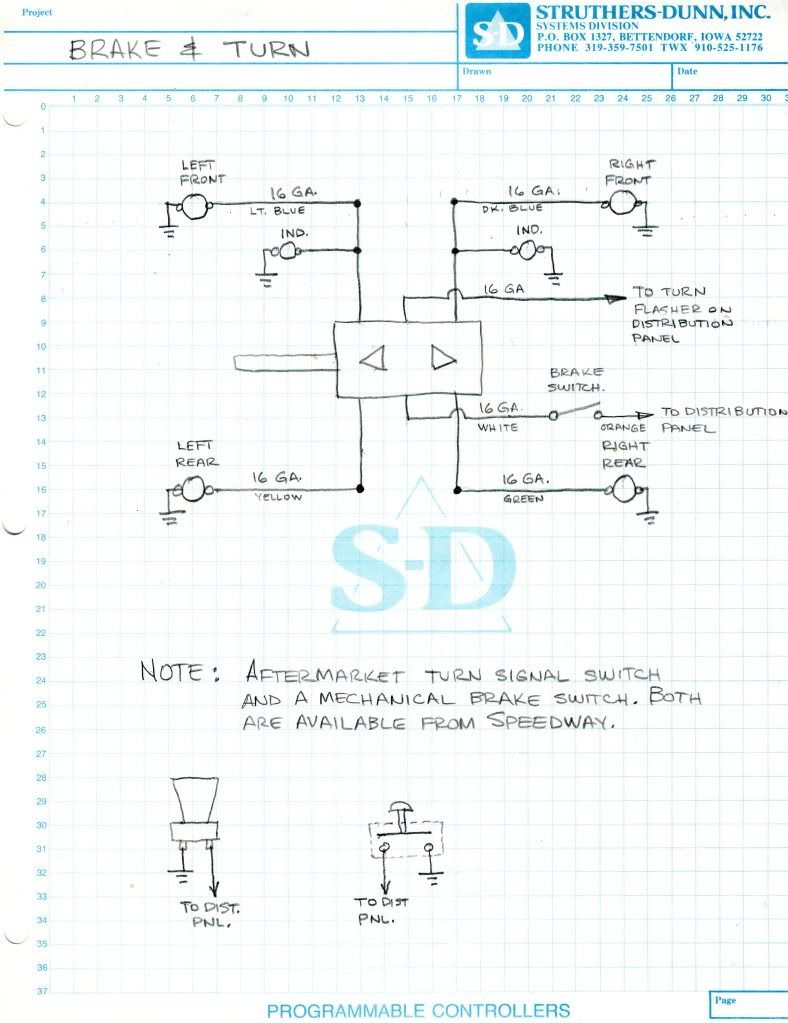 Project
BRAKE & TURN
S-D
STRUTHERS-DUNN, INC.
SYSTEMS DIVISION
P.O. BOX 1327, BETTENDORF, IOWA 52722
PHONE 319-359-7501 TWX 910-525-1176
Drawn
Date
0 1 2 3 4 5 6 7 8 9 10 11 12 13 14 15 16 17 18 19 20 21 22 23 24 25 26 27 28 29 30
1
2
3
4
5
6
7
8
9
10
11
12
13
14
15
16
17
18
19
20
21
22
23
24
25
26
27
28
29
30
31
32
33
34
35
36
37
LEFT
FRONT
16 GA.
LT. BLUE
IND.
RIGHT
FRONT
16 GA.
DK. BLUE
IND.
16 GA
TO TURN
FLASHER ON
DISTRIBUTION
PANEL
BRAKE
SWITCH.
16 GA.
WHITE
ORANGE
TO DISTRIBUTION
PANEL
LEFT
REAR
16 GA.
YELLOW
RIGHT
REAR
16 GA.
GREEN
S-D
NOTE: AFTERMARKET TURN SIGNAL SWITCH
AND A MECHANICAL BRAKE SWITCH. BOTH
ARE AVAILABLE FROM SPEEDWAY.
TO DIST.
PNL.
TO DIST
PNL.
PROGRAMMABLE CONTROLLERS
Page